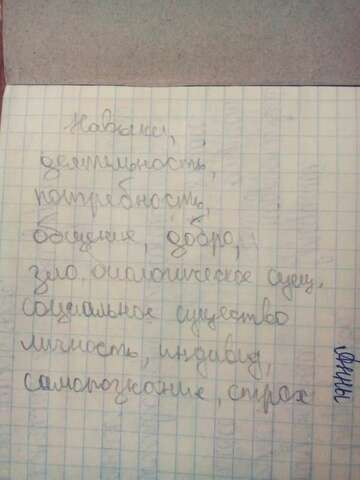 Навыки,
деятельность,
потребность,
общение, добро,
зло. биологическое сущ.
социальное существо
личность, индивид,
самопознание, страх